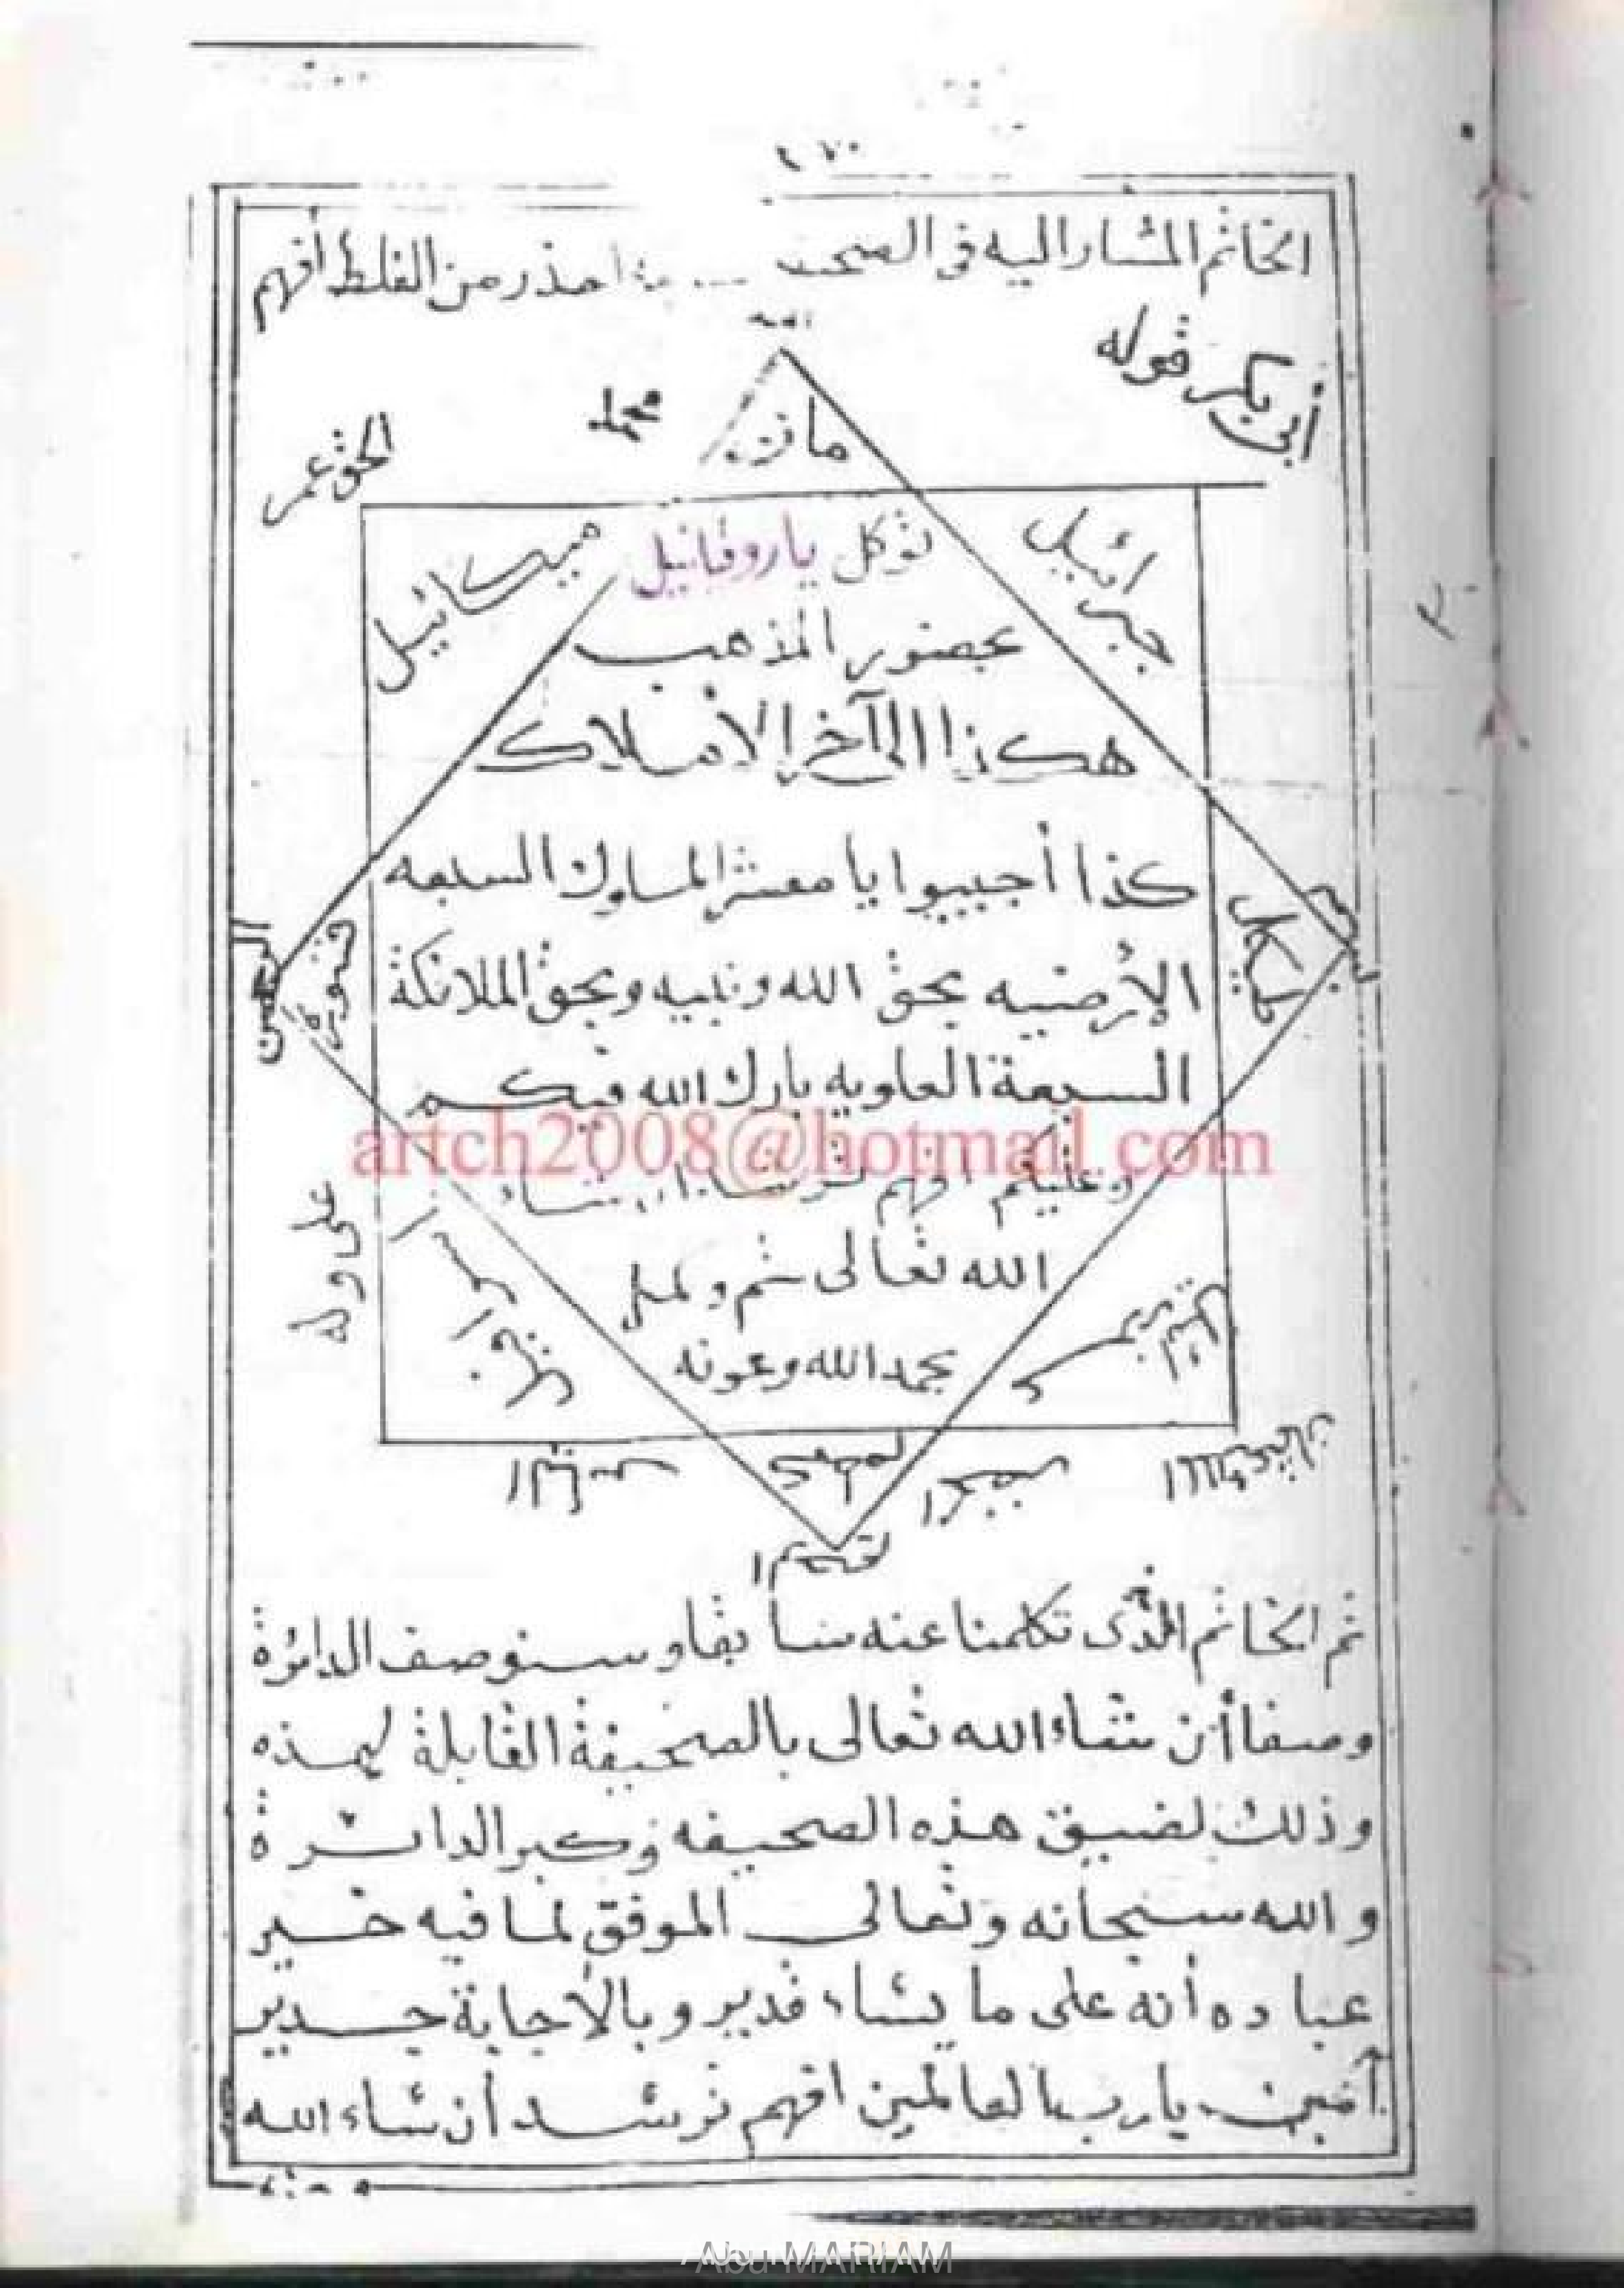 ٢٧٠
الخاتم المشار اليه في احذر من الغلط أفهم
أبى بكر قوله
محمد
الحق عمر
مازر
توكل ياروقيائيل
جبرائيل
ميكائيل
بحضور المذهب
هكذا الى آخر الاملاك
كذا أجيبوا يا معشر الملوك السبعه
الأرضيه بحق الله ونبيه وبحق الملائكة
السبعة العلويه بارك الله فيكم
artch2008@hotmail.com
وعليكم افهم ترشد شاء
الله تعالى تم وكمل
بحمد الله وعونه
قسورة
على وله
ثم الخاتم الذى تكلمنا عنه سابقا وسنوصف الدائرة
وصفا أن شاء الله تعالى بالصحيفة القابلة لهذه
وذلك لضيق هذه الصحيفه وكبر الدائرة
والله سبحانه وتعالى الموفق لما فيه خير
عباده أنه على ما يشاء قدير وبالأجابة جدير
آمين يارب العالمين افهم ترشد أن شاء الله
Abu MARIAM